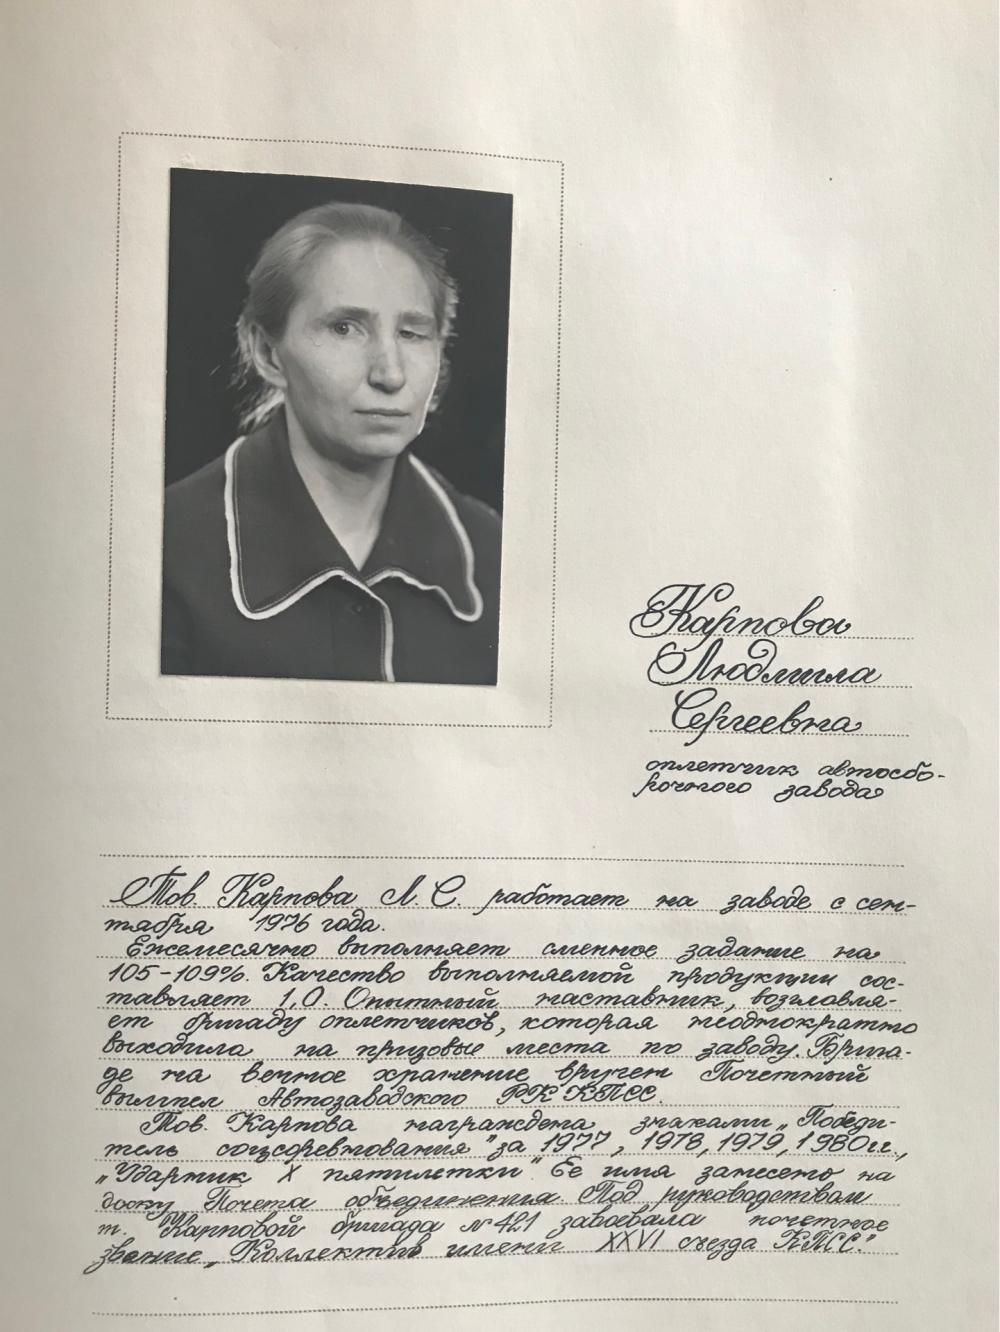 Карпова
Людмила
Сергеевна
оплетчик автосбо-
рочного завода
Тов. Карпова Л. С. работает на заводе с сен-
тября 1976 года.
Ежемесячно выполняет сменное задание на
105-109%. Качество выполняемой продукции сос-
тавляет 1,0. Опытный наставник, возглавля-
ет бригаду оплетчиков, которая неоднократно
выходила на призовые места по заводу. Брига-
де на вечное хранение вручен Почетный
вымпел Автозаводского РК КПСС.
Тов. Карпова награждена знаками „Победи-
тель соцсоревнования" за 1977, 1978, 1979, 1980 г.г.,
„Ударник X пятилетки". Ее имя занесено на
доску Почета объединения. Под руководством
т. Карповой бригада № 421 завоевала почетное
звание „Коллектив имени XXVI съезда КПСС."